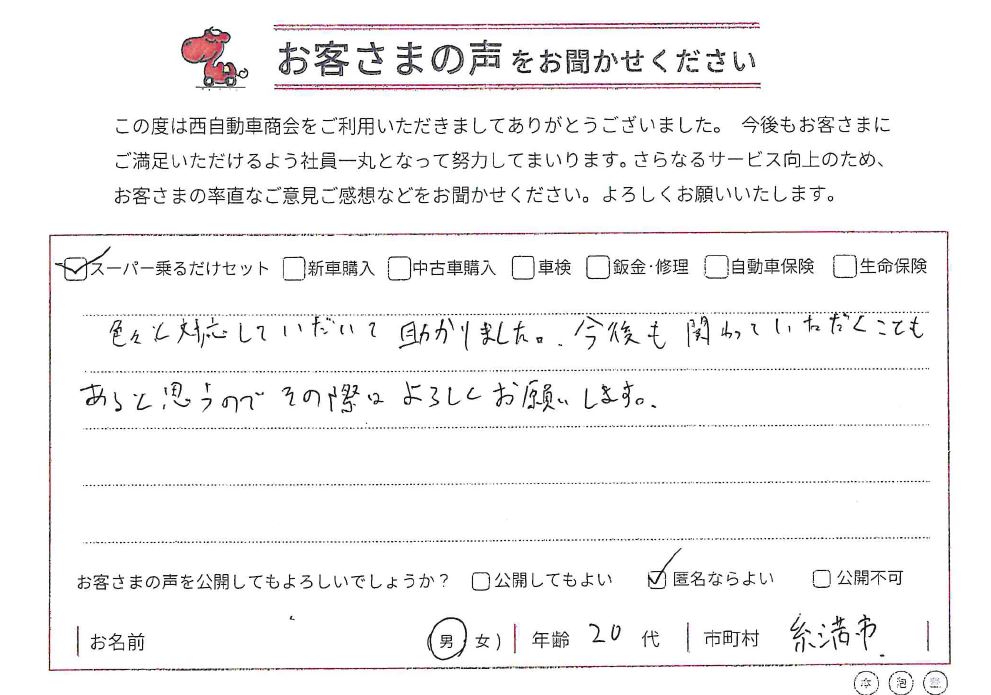 お客さまの声をお聞かせください
この度は西自動車商会をご利用いただきましてありがとうございました。 今後もお客さまに
ご満足いただけるよう社員一丸となって努力してまいります。さらなるサービス向上のため、
お客さまの率直なご意見ご感想などをお聞かせください。よろしくお願いいたします。
スーパー乗るだけセット 新車購入 中古車購入 車検 鈑金・修理 自動車保険 生命保険
色々と対応していだいて 助かりました。今後も 関わっていただくことも
あると思うので その際は よろしくお願いします。
お客さまの声を公開してもよろしいでしょうか? 公開してもよい 匿名ならよい 公開不可
お名前 (男 女) 年齢 20 代 市町村 糸満市